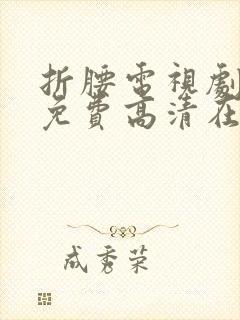 折腰電視劇
免費高清在
成秀荣